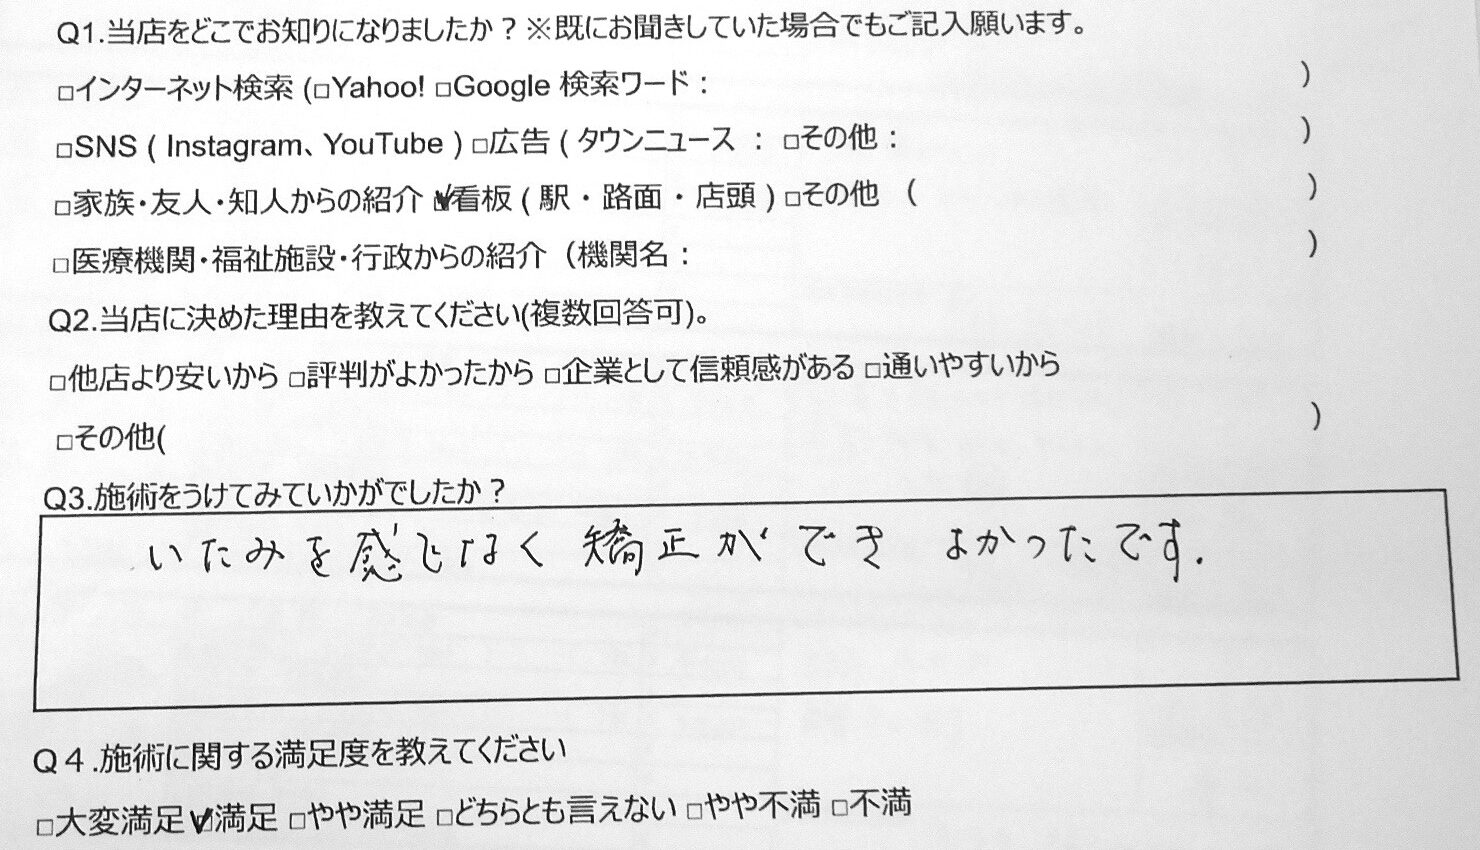 Q1.当店をどこでお知りになりましたか？※既にお聞きしていた場合でもご記入願います。
□インターネット検索 (□Yahoo! □Google 検索ワード： )
□SNS ( Instagram、YouTube ) □広告 ( タウンニュース ： □その他： )
□家族・友人・知人からの紹介 ☑看板 ( 駅 ・ 路面 ・ 店頭 ) □その他 ( )
□医療機関・福祉施設・行政からの紹介（機関名： )
Q2.当店に決めた理由を教えてください(複数回答可)。
□他店より安いから □評判がよかったから □企業として信頼感がある □通いやすいから
□その他( )
Q3.施術をうけてみていかがでしたか？
いたみを感じなく 矯正が でき よかったです.
Q４.施術に関する満足度を教えてください
□大変満足 ☑満足 □やや満足 □どちらとも言えない □やや不満 □不満